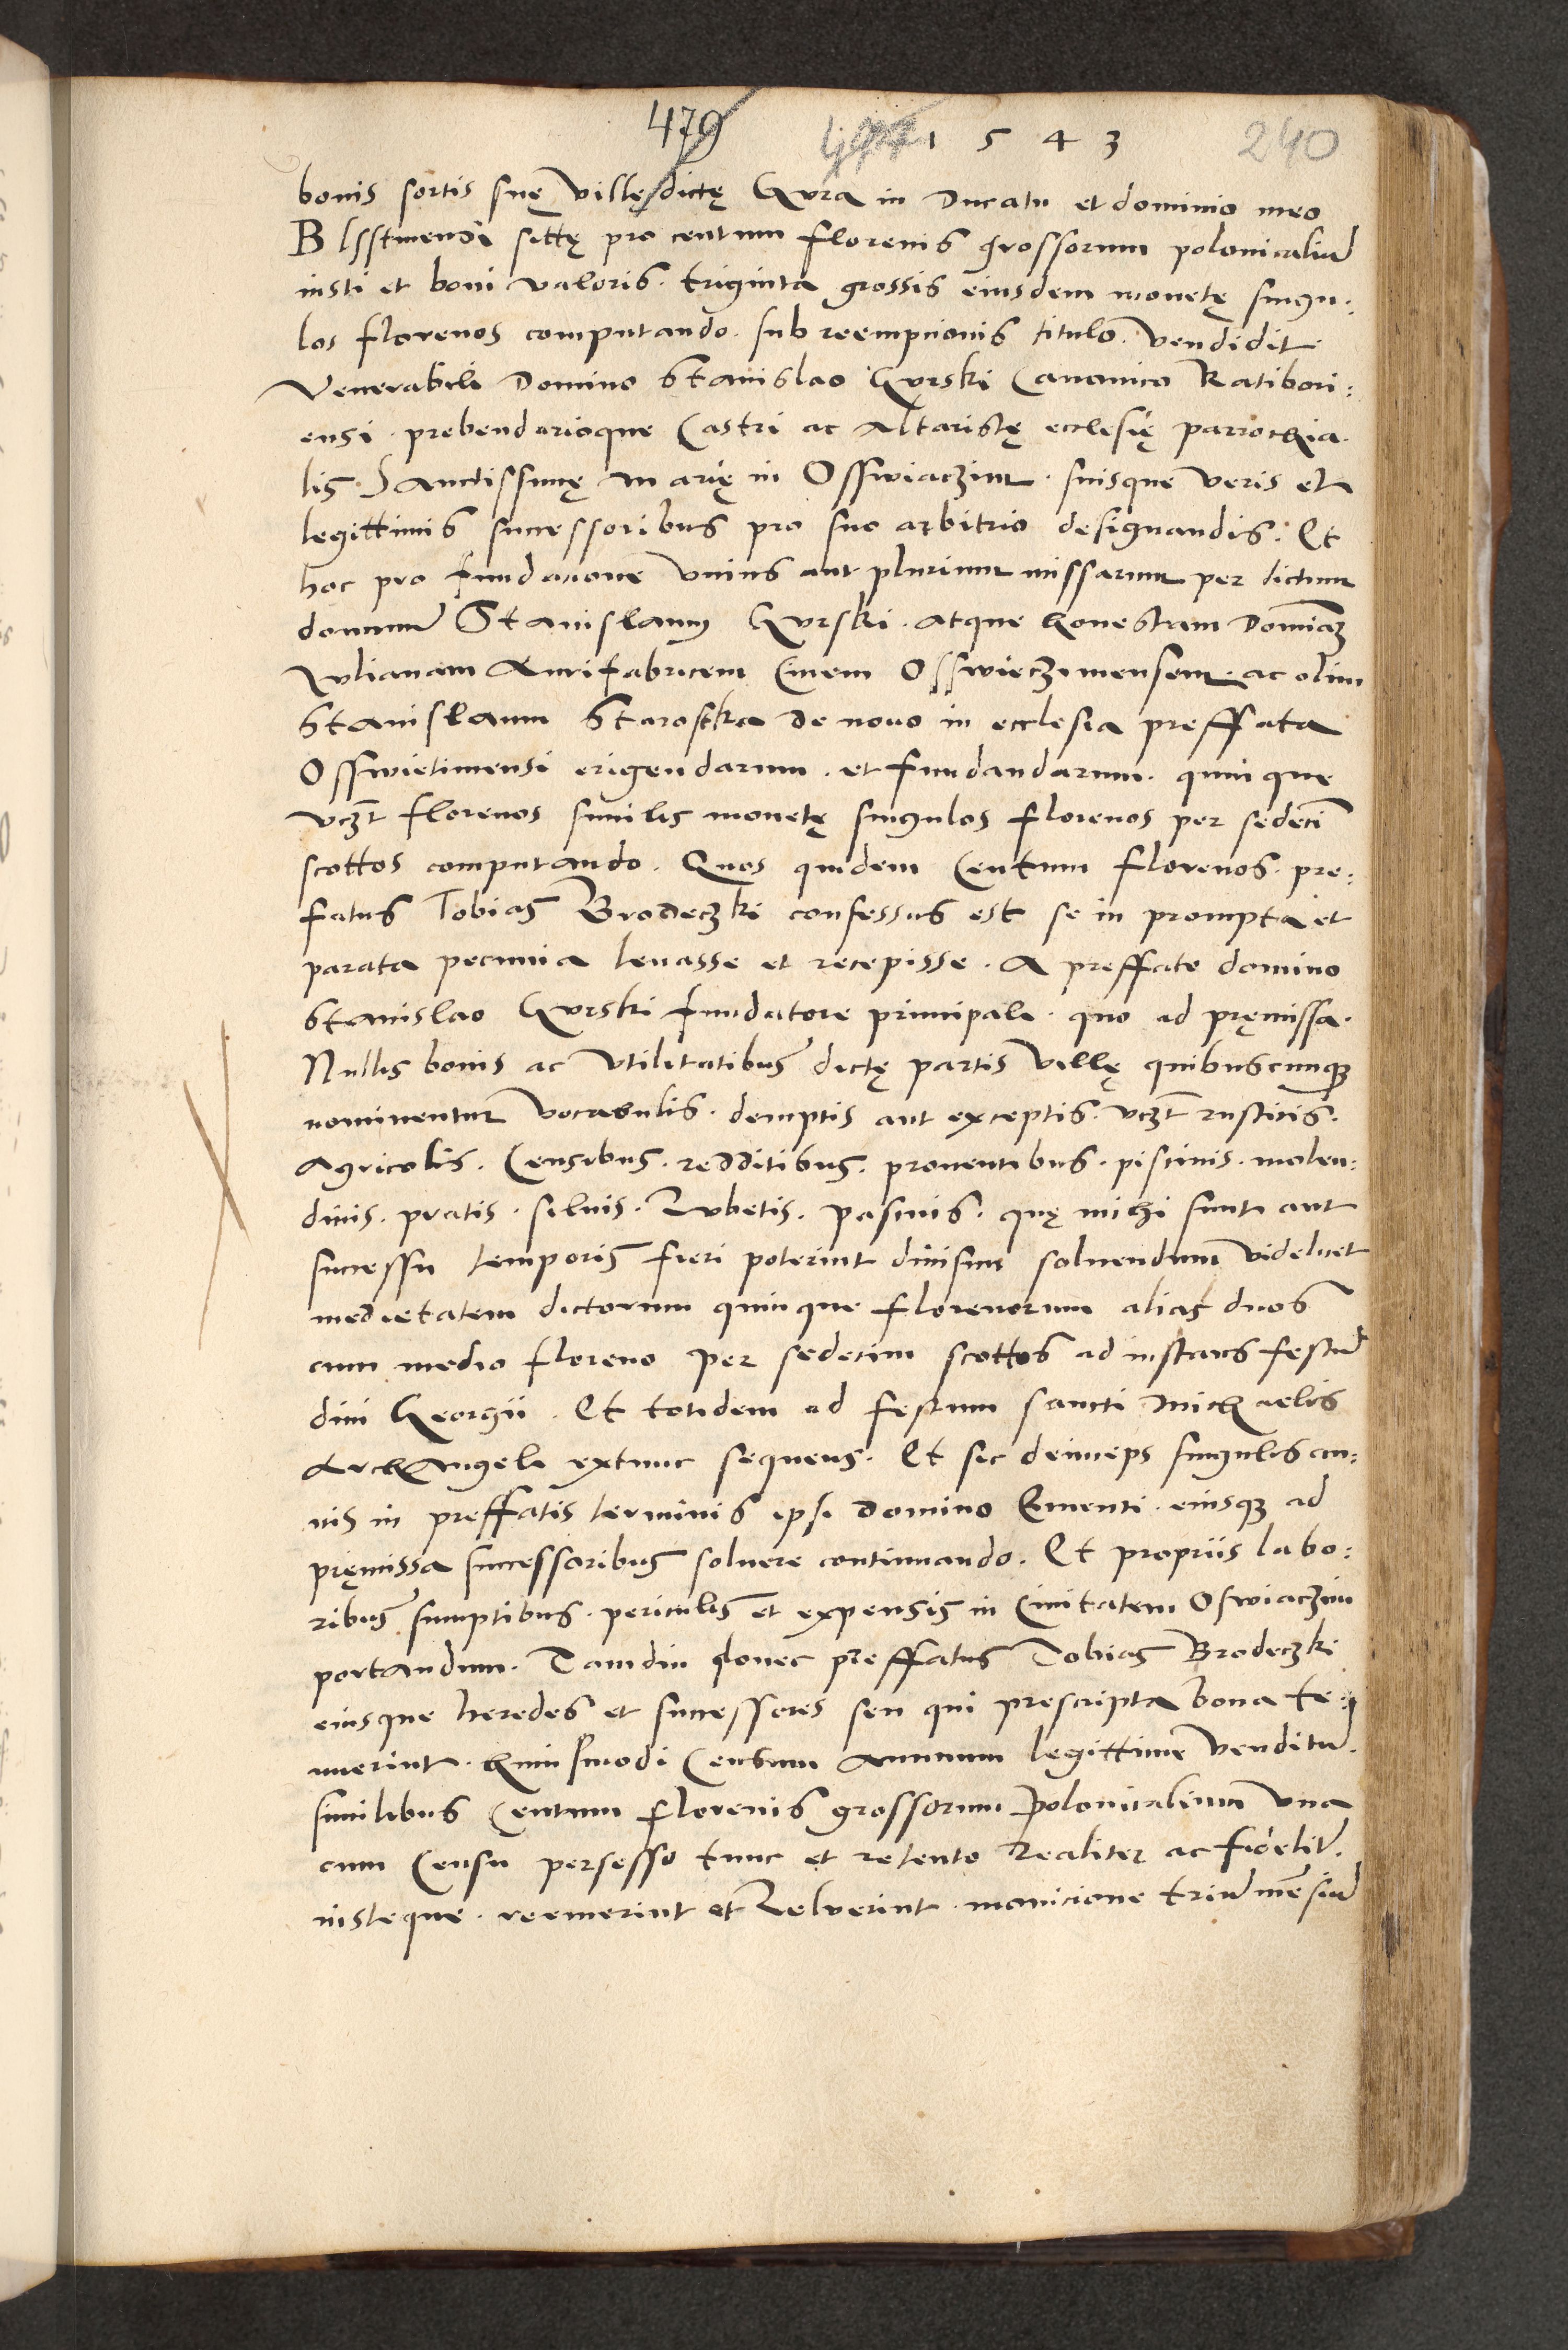 479 1 5 4 3 240
bonis sortis suę villę dictę Gura in Ducatu et dominio meo
Plsstinensi sittę pro centum florenis grossorum polonicaliũ
iusti et boni valoris. triginta grossis eiusdem monetę singu:
los florenos computando. sub reempcionis titulo. vendidit
Venerabili Domino Stanislao Gurski Canonico Ratibori:
ensi. prebendarioque Castri ac Altaristę ecclesię parrochia.
lis Sanctissimę Marię in Osswiaczim. suisque veris et
legittimis successoribus pro suo arbitrio designandis. Et
hoc pro fundacione vnius aut plurium missarum per dictum
dominũ Stanislaum Gurski. atque honestam Dominã
Iulianam Aurifabricem Ciuem Osswieczimensem. ac olim
Stanislaum Starostka de nouo in ecclesia preffata
Osswietimensi erigendarum. et fundandarum. quinque
vczt florenos similis monetę singulos florenos per sedeci
scottos computando. Quos quidem Centum florenos. pre:
fatus Tobias Brodeczki confessus est se in prompta et
parata pecunia leuasse et recepisse. A preffato domino
Stanislao Gurski fundatore principali. quo ad pręmissa.
Nullis bonis ac vtilitatibus dictę partis villę quibuscunqȝ
nominentur vocabulis. demptis aut exceptis. vczt rusticis.
Agricolis. Censibus. redditibus. prouentibus. piscinis. molen:
dinis. pratis. siluis. Rubetis. pascuis. quę michi sunt aut
successu temporis fieri poterint diuisim soluendum videlicet
medietatem dictorum quinque florenorum alias duos
cum medio floreno per sedecim scottos ad instans festũ
diui Georgii. Et totidem ad festum sancti Michaelis
Archangeli extunc sequens. Et sic deinceps singulis an:
nis in preffatis terminis ipsi domino Ementi. eiusqȝ ad
pręmissa successoribus soluere continuando. Et propriis labo:
ribus sumptibus. periculis et expensis in Ciuitatem Oswiaczim
portandum. Tamdiu donec preffatus Tobias Brodeczki
eiusque heredes et successores seu qui prescripta bona te:
nuerint. huiusmodi Censum annuum legittime venditũ.
similibus Centum florenis grossorum Polonicalium vna
cum Censu persesso tunc et retento Realiter ac fidelit̃.
iusteque. reemerint et Reluerint. monicione triũ mẽsiũ